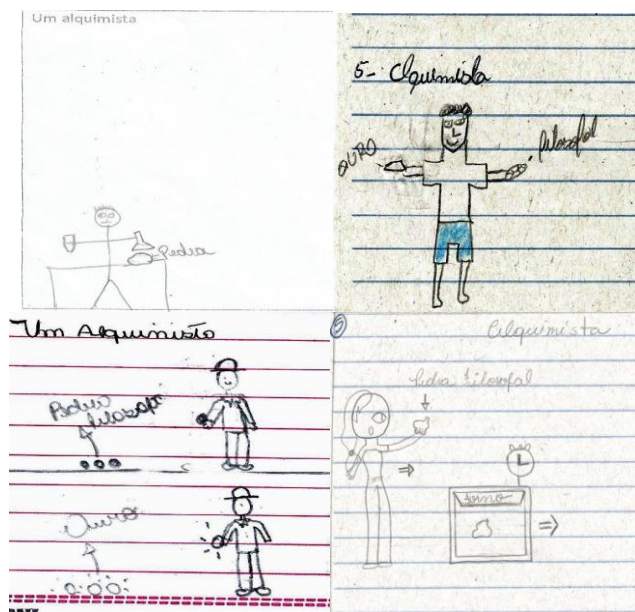 Um alquimista
Pedra
5- Alquimista
OURO
filosofal
Um Alquimista
Pedra
filosofal
Ouro
5
Alquimista
Pedra filosofal
forno